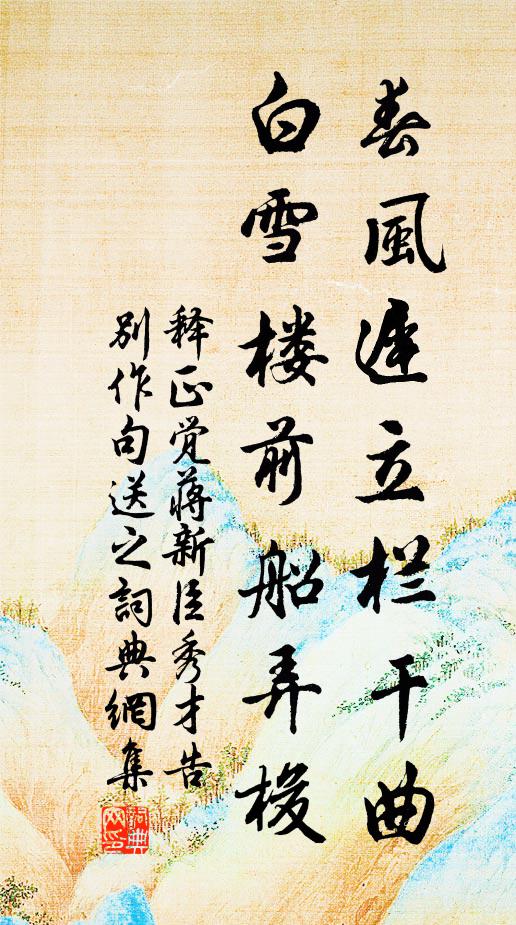 春風遅立栏干曲
白雪楼前船弄梭
释正觉蒋新臣秀才告
别作句送之词典網集